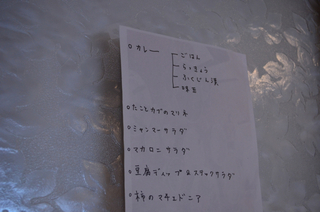 ○ カレー
ごはん
らっきょう
ふくじん漬
○ たことカブのマリネ
○ ミャンマーサラダ
○ マカロニサラダ
○ 豆腐ディップ&スティックサラダ
○ 柿のマチェドニア